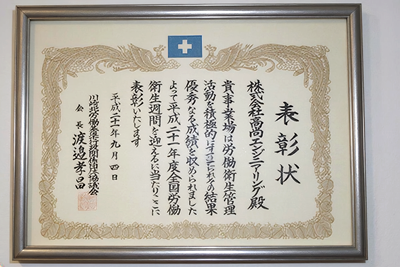 表彰状
株式会社高尚エンジニアリング殿
貴事業場は労働衛生管理
活動を積極的に すすめられその結果
優秀なる成績を収められました
よって平成二十一年度全国労働
衛生週間を迎えるに当たりここに
表彰いたします
平成二十一年九月四日
川崎北労働基準行政関係団体協議会
会長 渡邉孝昌